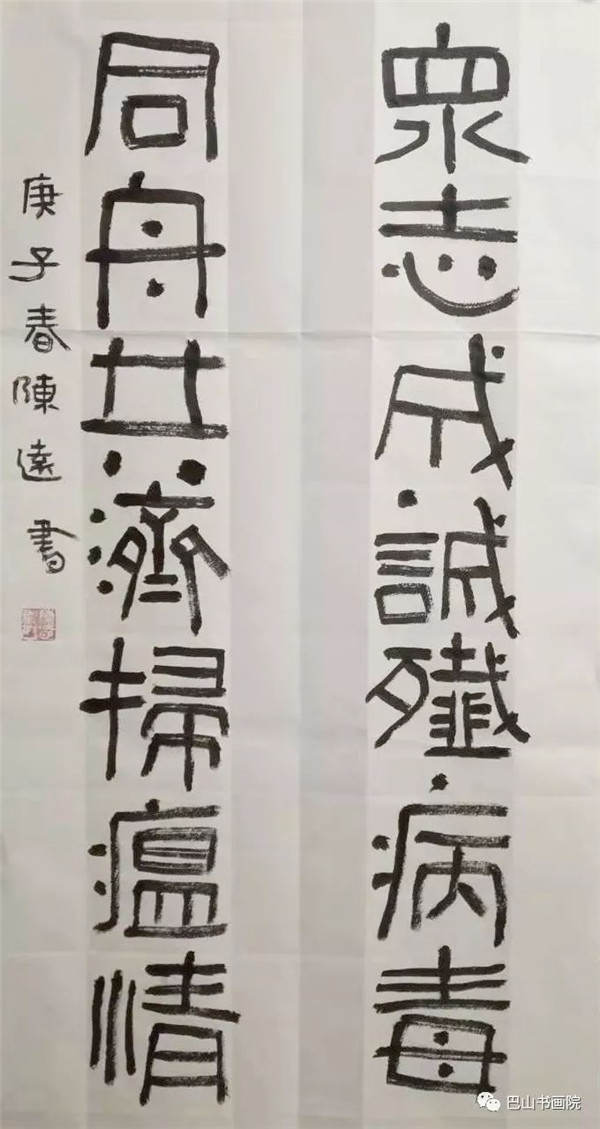 衆志成誠殲病毒
同舟共濟掃瘟情
庚子春陳遠書
巴山书画院